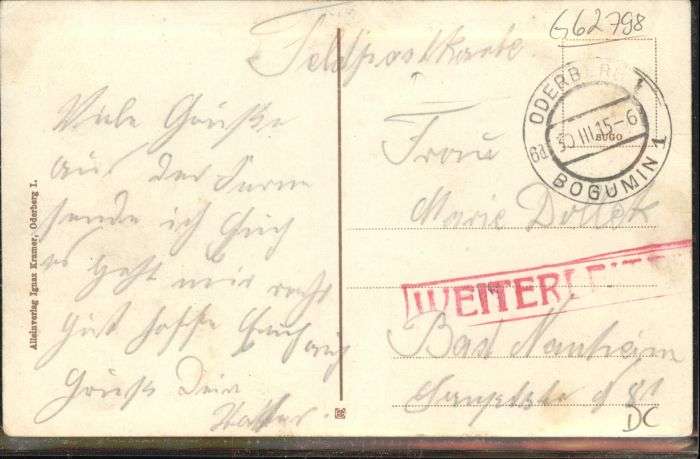 G62798
Feldpostkarte
ODERBERG 1
6d 30 III 15-6
BOGUMIN 1
BUGO
Viele Grüße
aus der Ferne
sende ich Euch
es geht mir recht
gut hoffe Euch auch
Grüße Dein
Frau
Marie
WEITERLEITEN
Bad Nauheim
DC
Alleinverlag Ignaz Kramer, Oderberg I.